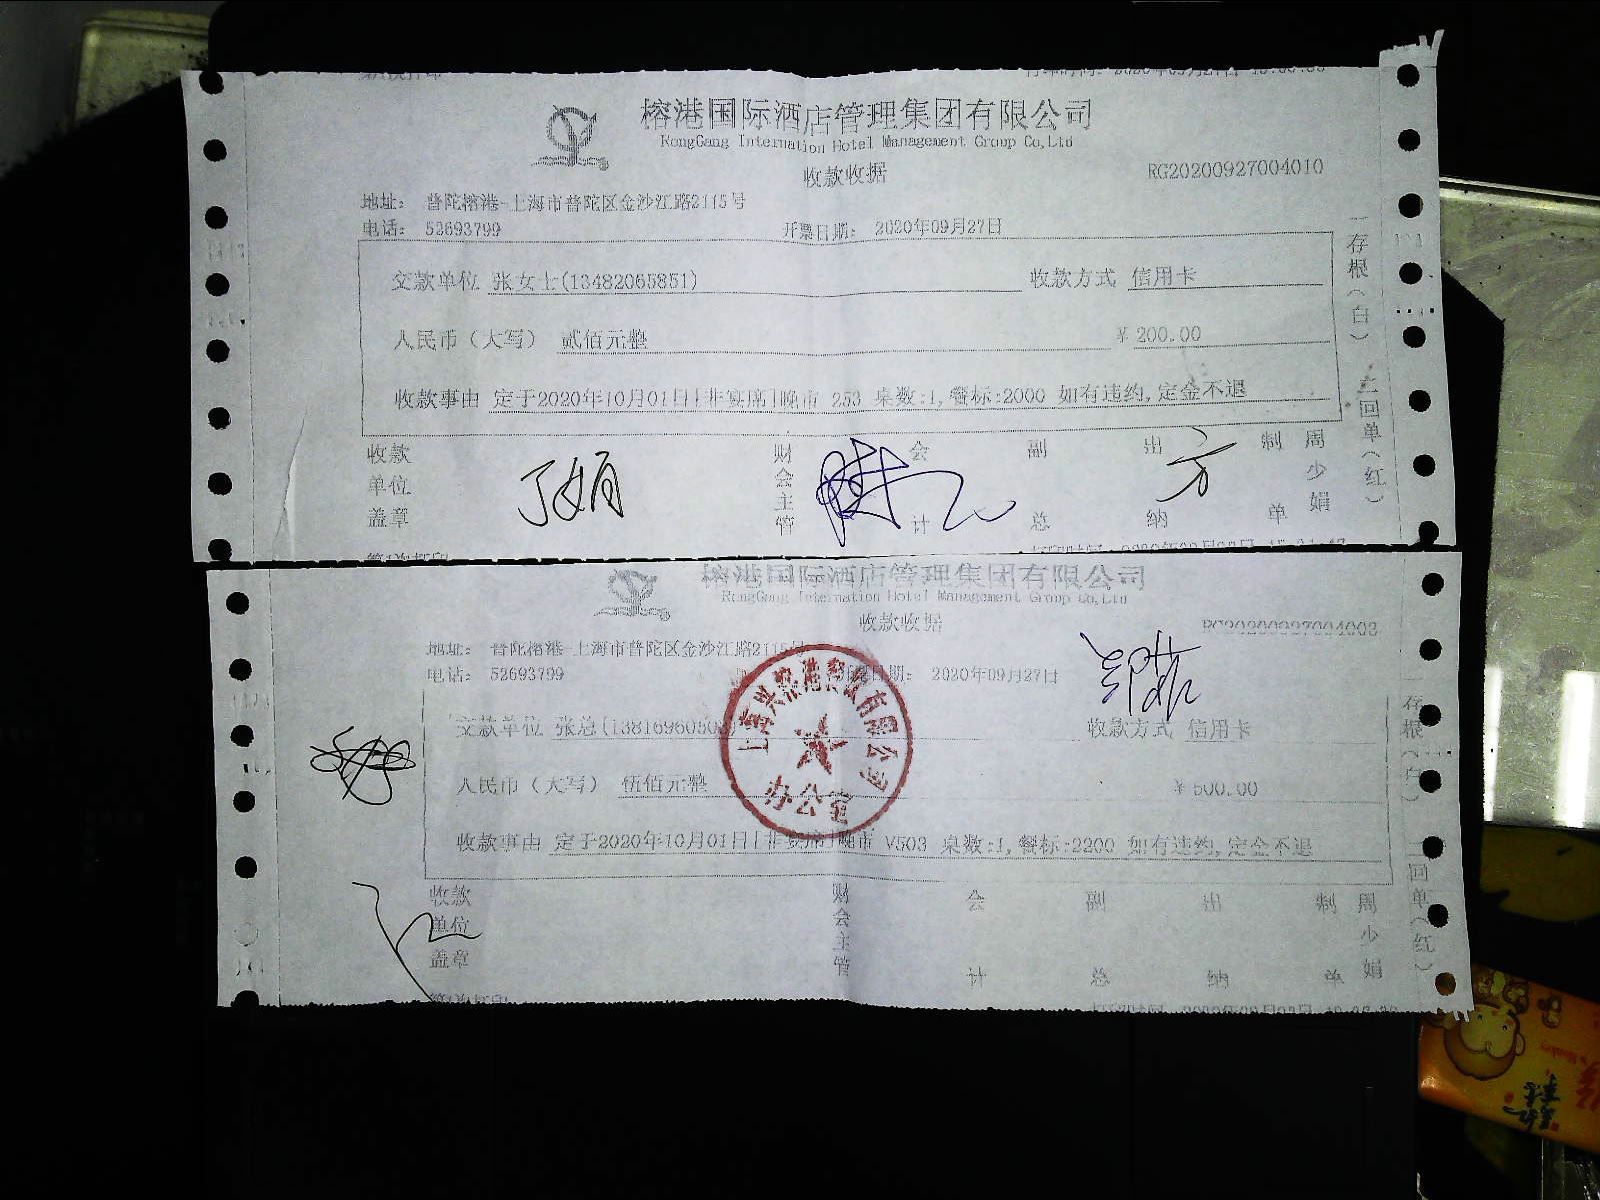 榕港国际酒店管理集团有限公司
RongGang Internation Hotel Management Group Co,Ltd
收款收据
RG20200927004010
地址： 普陀榕港-上海市普陀区金沙江路2115号
电话： 52693799 开票日期： 2020年09月27日
交款单位 张女士(13482065851) 收款方式 信用卡
人民币（大写） 贰佰元整 ¥ 200.00
收款事由 定于2020年10月01日[非宴席]晚市 253 桌数:1,餐标:2000 如有违约,定金不退
收款单位盖章 财会主管 会计 副总 出纳 制单 周少娟
一存根（白） 二回单（红）
榕港国际酒店管理集团有限公司
RongGang Internation Hotel Management Group Co,Ltd
收款收据
RG20200927004003
地址： 普陀榕港-上海市普陀区金沙江路2115号
电话： 52693799 开票日期： 2020年09月27日
交款单位 张总 收款方式 信用卡
人民币（大写） 伍佰元整 ¥ 500.00
收款事由 定于2020年10月01日[非宴席]晚市 V503 桌数:1,餐标:2200 如有违约,定金不退
收款单位盖章 财会主管 会计 副总 出纳 制单 周少娟
一存根（白） 二回单（红）
办公室